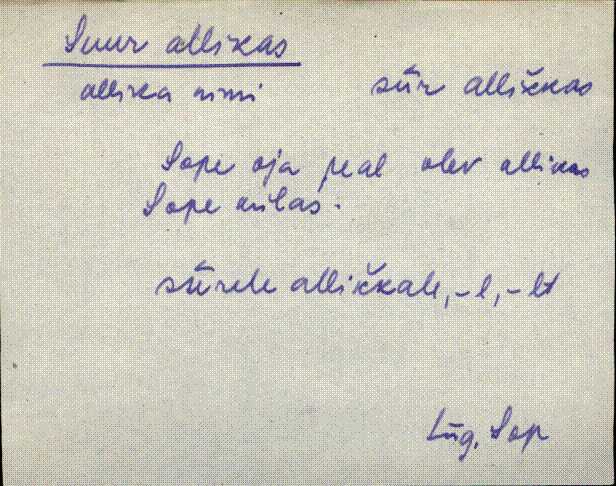 Suur allikas
allika nimi sūr alliʿkkas
Sope oja peal olev allikas
Sope külas.
sūrele alliʿkkale, -l, -lt
Lüg, Sop